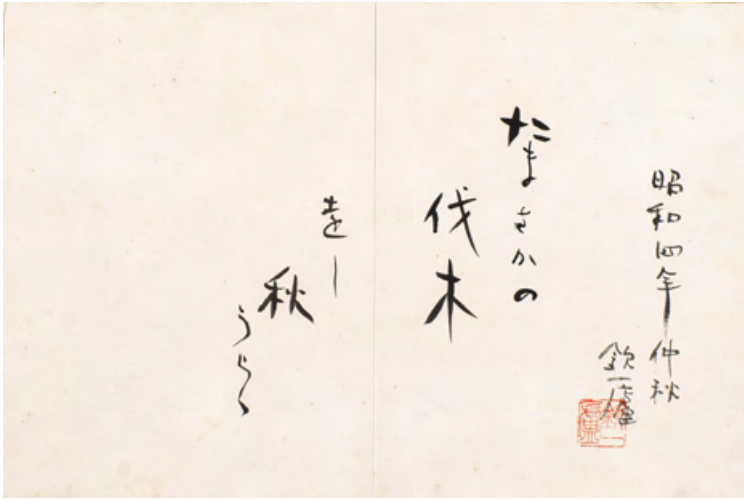 昭和四年 仲秋
欽一廬
たまさかの
伐木
遠し
秋
うらゝ